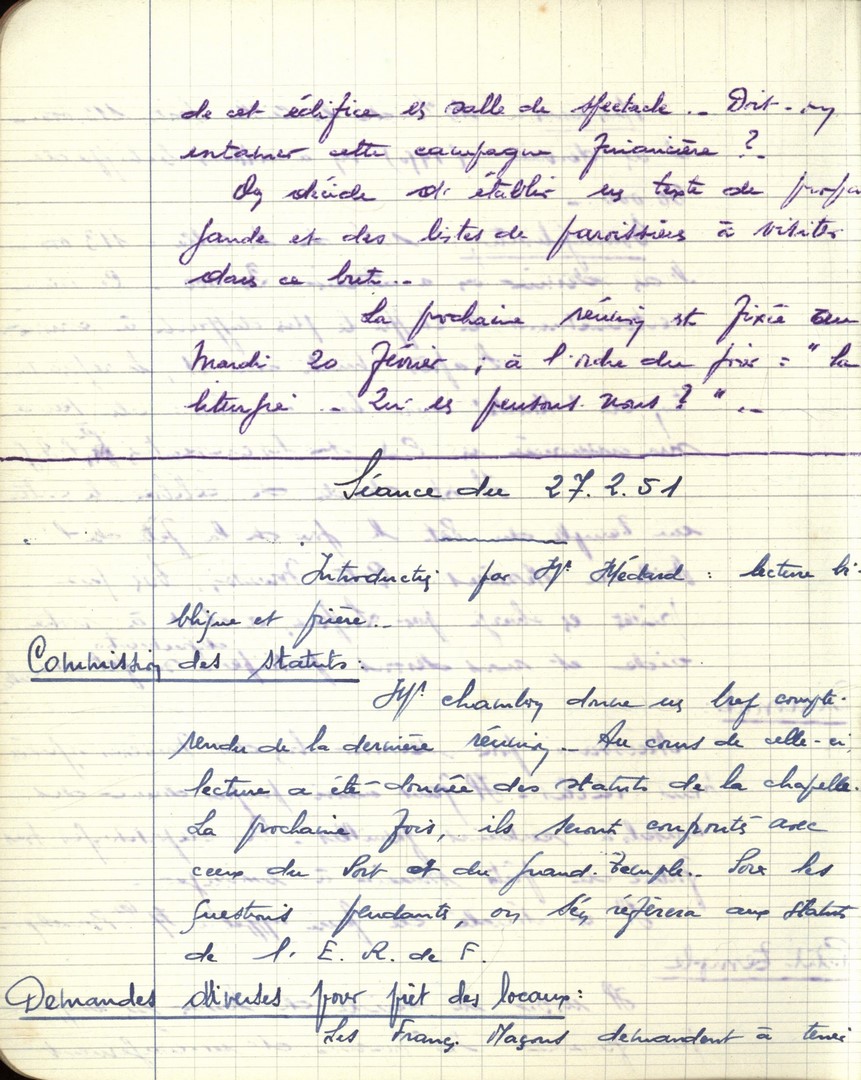 de cet édifice en salle de spectacle.. Doit-on
entamer cette campagne financière ?
On décide d'établir un texte de propa
gande et des listes de paroissiens à visiter
dans ce but..
La prochaine réunion est fixée au
Mardi 20 Février ; à l'ordre du jour = " La
liturgie .. Qu'en pensons nous ? " ..
Séance du 27.2.51
Introduction par Mr Médard : lecture bi-
blique et prière..
Commission des statuts :
Mr chambon donne un bref compte-
rendu de la dernière réunion - Au cours de celle-ci,
lecture a été donnée des statuts de la chapelle.
La prochaine fois, ils seront confrontés avec
ceux du Port et du Grand. Temple.. Pour les
questions pendantes, on s'en réfèrera aux statuts
de l'E. R. de F.
Demandes diverses pour prêt des locaux :
Les Franç. Maçons demandent à tenir